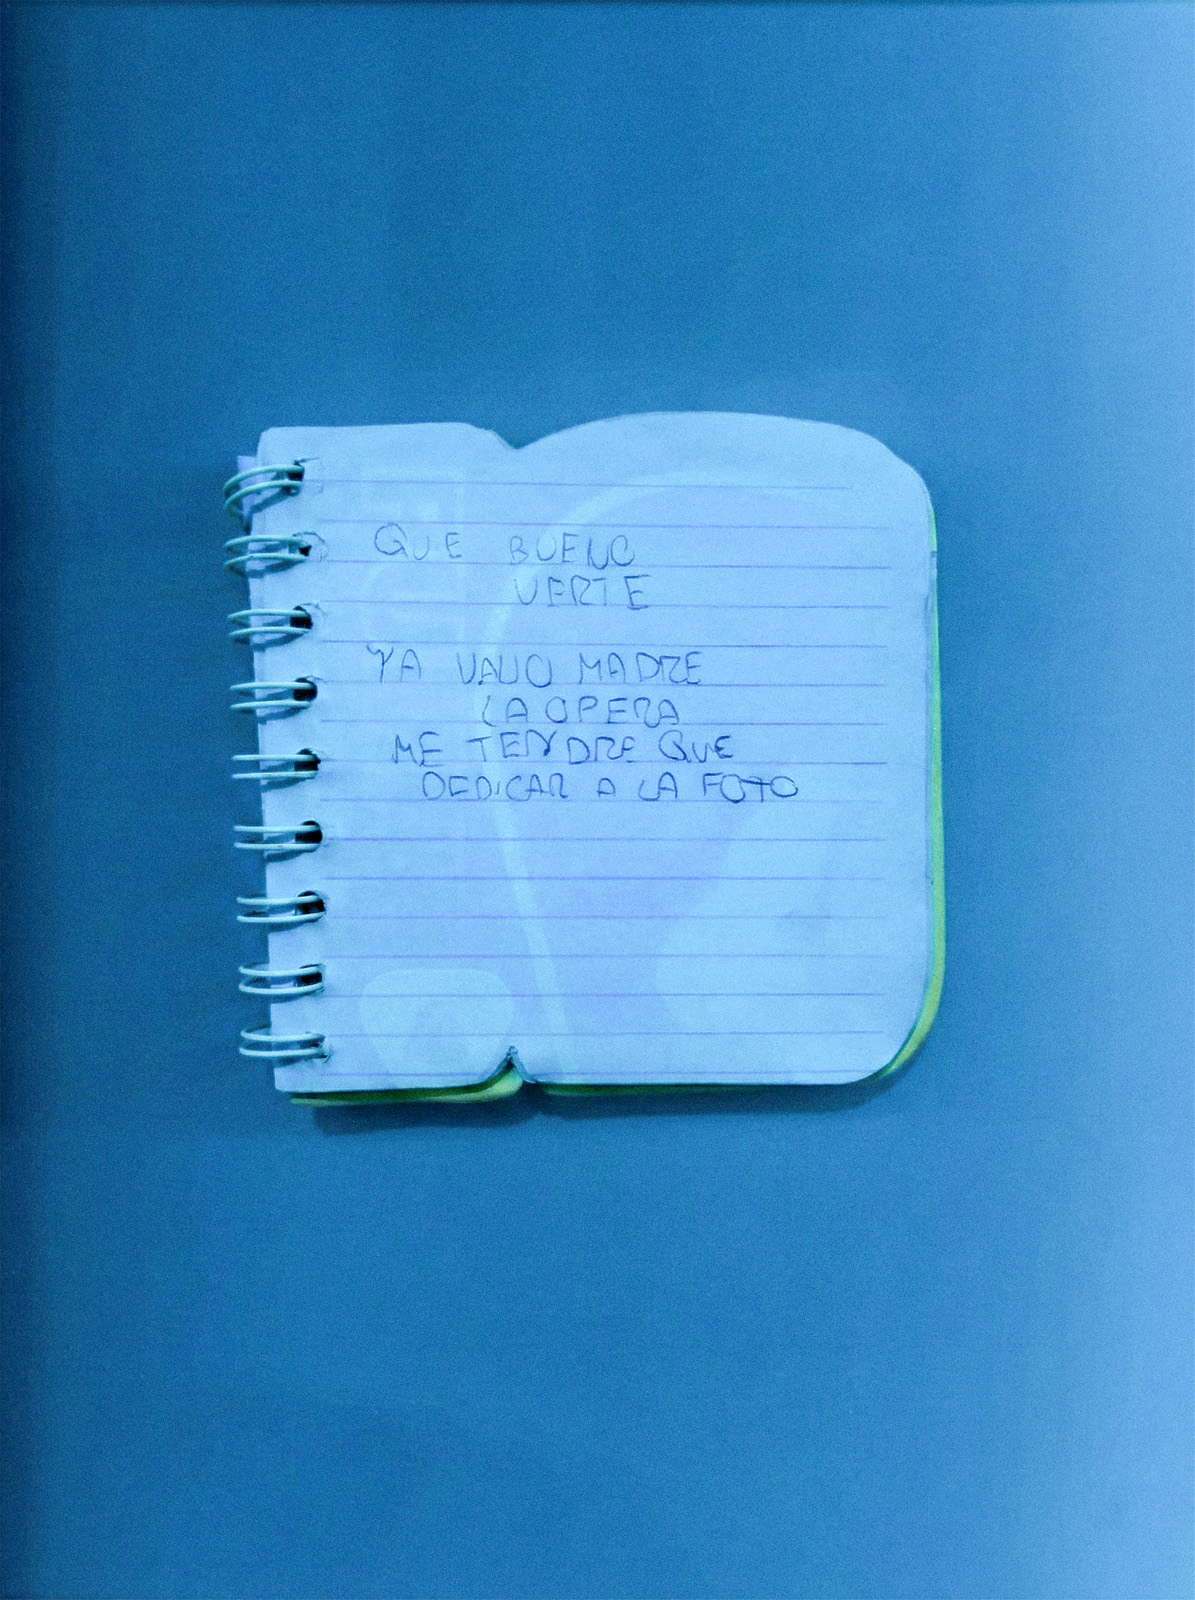 QUE BUENO
VERTE
YA VALIO MADRE
LA OPERA
ME TENDRE QUE
DEDICAR A LA FOTO